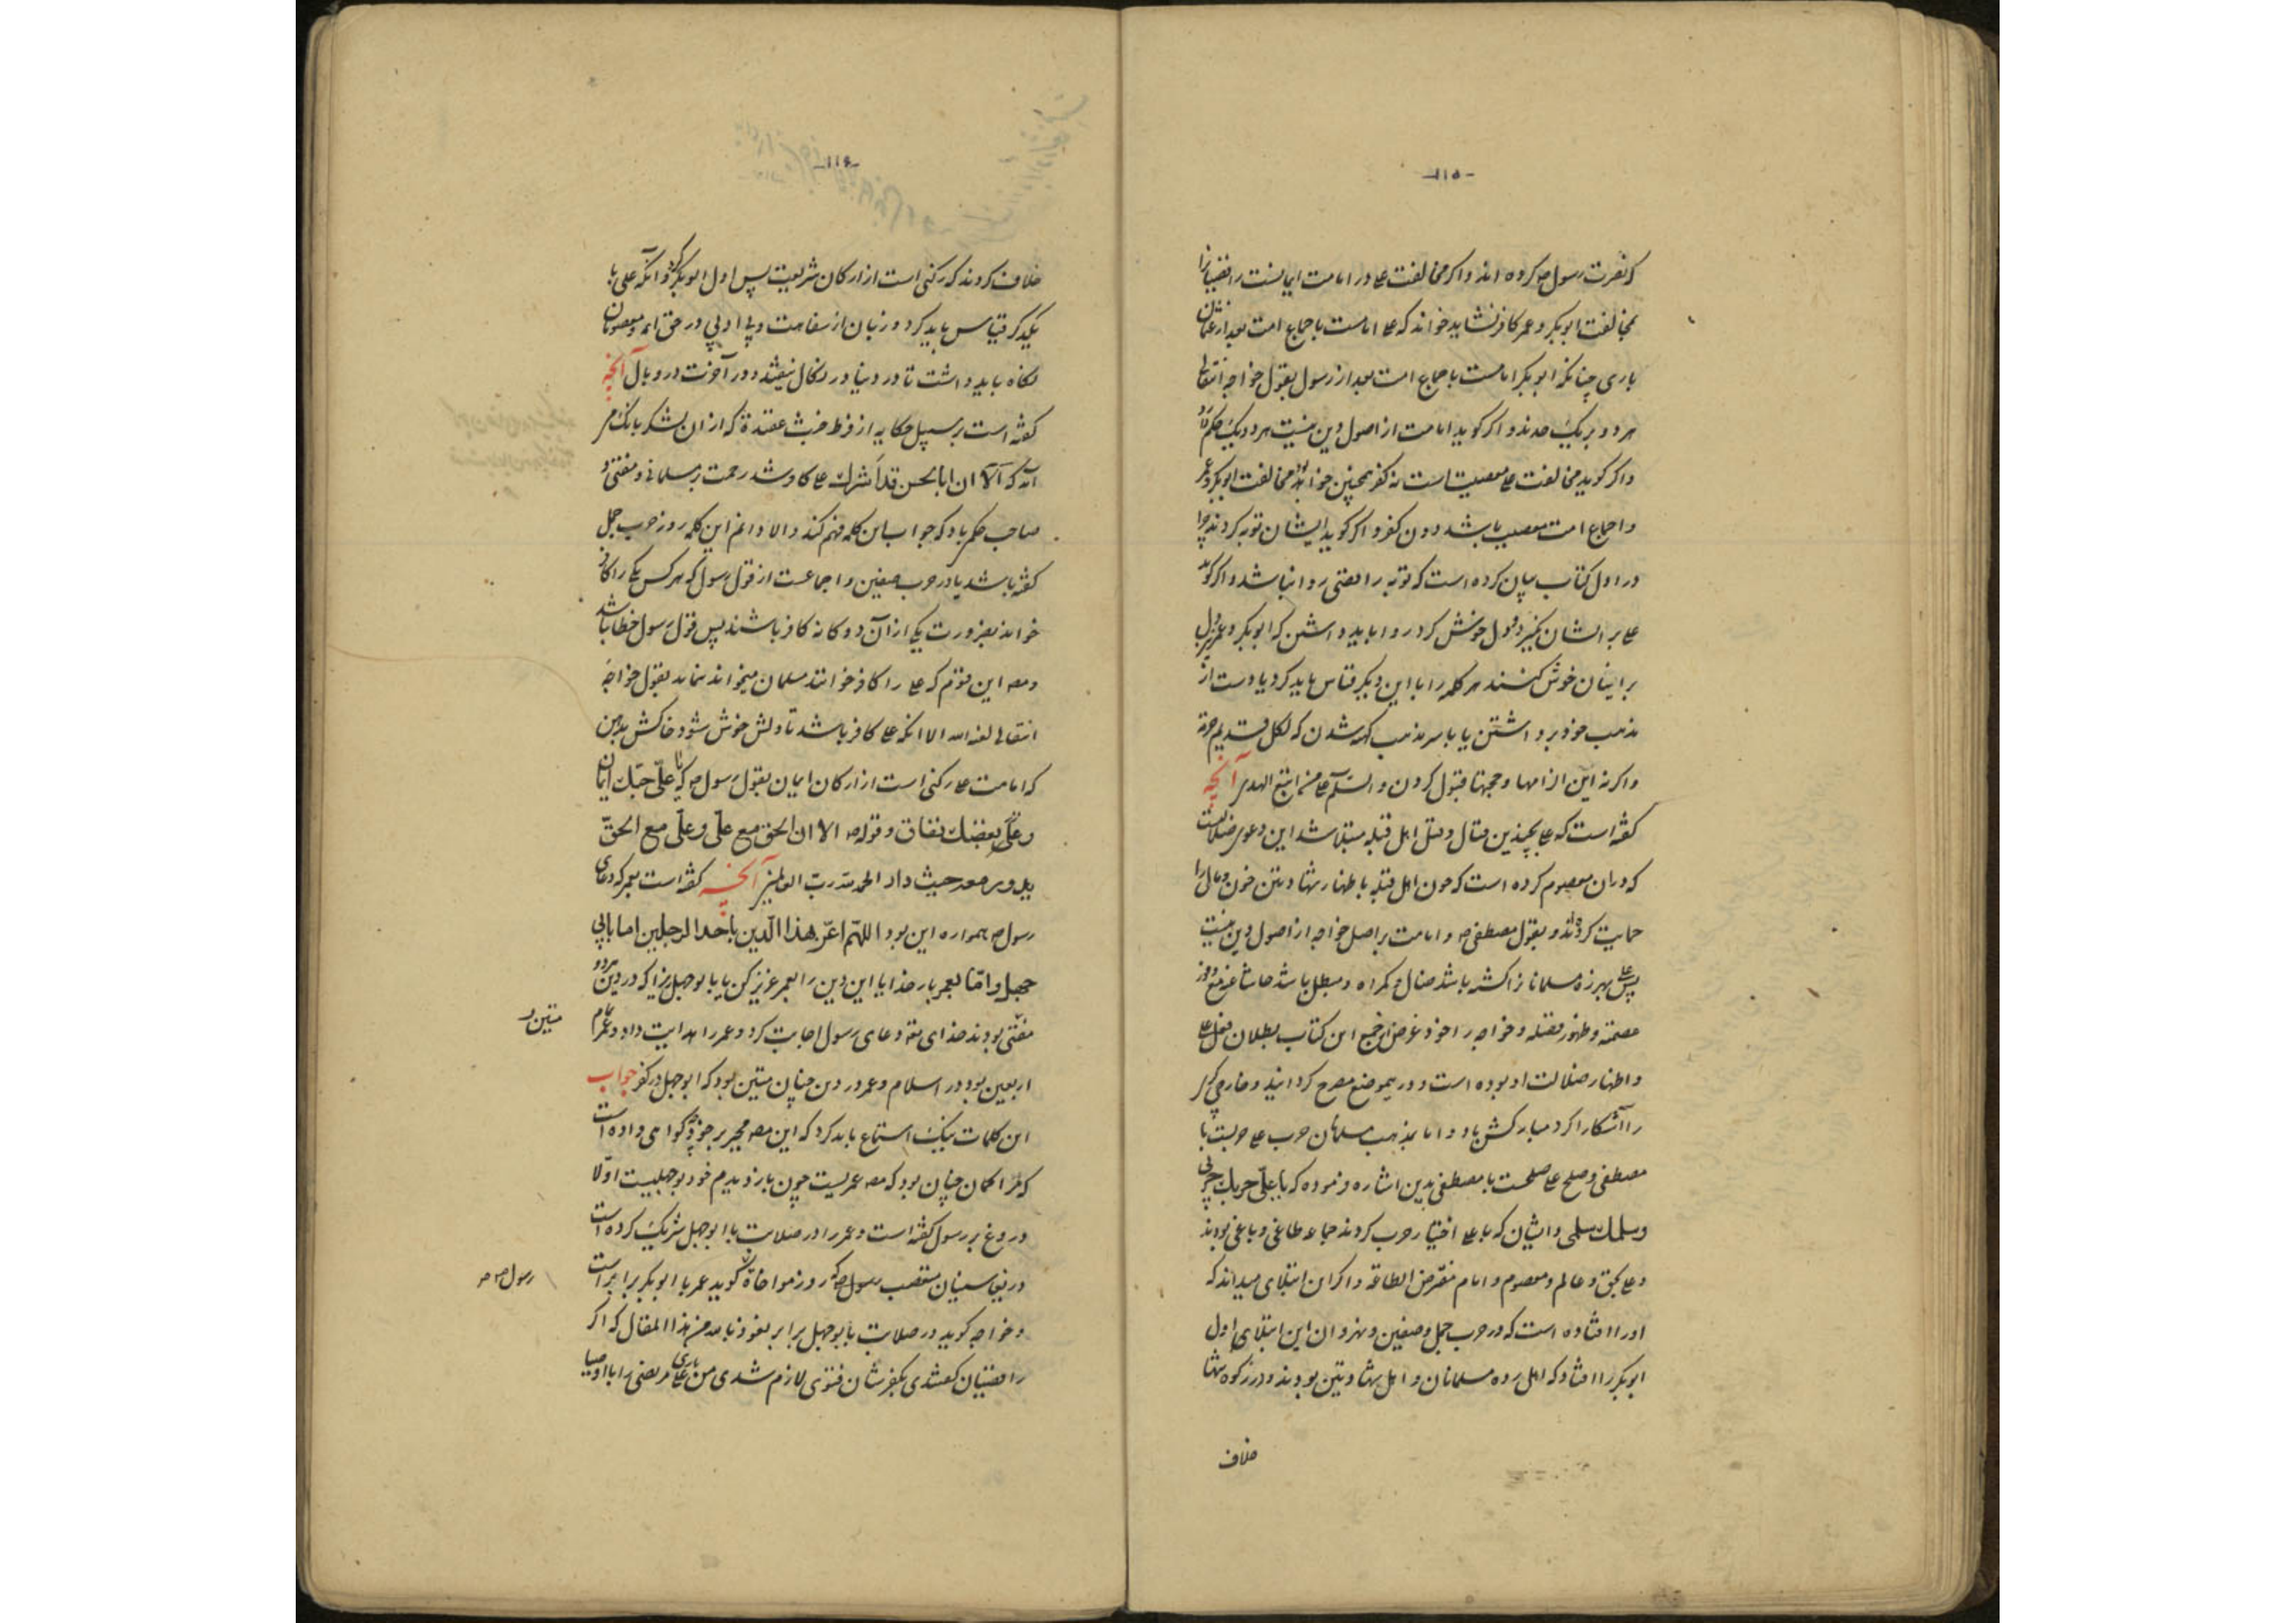 -۱۱۵-
که نصرت رسول ص کرده اند و اکر مخالفت ع در امامت ایمانست رافضیانرا
بمخالفت ابوبکر و عمر کافر نشاید خواند که ع امامست باجماع امت بعد از عثمان
باری چنانکه ابوبکر امامست باجماع امت بعد از رسول بقول خواجه انتقالی
هر دو بر یک حدند و اکر کوید امامت از اصول دین نیست هر دو یک حکم
و اکر کوید مخالفت ع معصیت است نه کفر همچنین مخالفت ابوبکر و عمر
و اجماع امت معصیت باشد دون کفر و اکر کوید ایشان توبه کردند چرا
در اول کتاب بیان کرده است که توبه رافضی روا نباشد و اکر کوید
ع بر ایشان بگیرد دل خوش کرد روا باید داشتن که ابوبکر و عمر نیز دل
بر اینان خوش کنند هر کلمه را با این دیکر قیاس باید کرد یا دست از
مذهب خود برداشتن یا با سر مذهب کهنه شدن که لکل قدیم حرمة
و اکر نه این الزامها و حجتها قبول کردن و السّلم ع من اتبع الهدی آنچه
کفته است که ع بچندین قتال و قتل اهل قبله مبتلا شد این دعوی ضلالت
که در آن معصوم کرده است که چون اهل قبله باظهار شهادتین خون و مال را
حمایت کرده اند و بقول مصطفی ص و امامت بر اصل خواجه از اصول دین نیست
پس علی بهرزه مسلمانانرا کشته باشد ضال و کمراه و مبطل باشد حاشا عنه مع وفور
عصمته و ظهور فضله و خواجه را خود غرض از جمع این کتاب بطلان فعل علی
و اظهار ضلالت او بوده است و در یموضع مصرح کردانید و خارجی کری
را آشکارا کرد مبارکش باد و اما بمذهب مسلمانان حرب ع حربست با
مصطفی و صلح ع صلحست با مصطفی بدین اشاره فرموده که یا علیّ حربک حربی
و سلمک سلمی و ایشان که با ع اختیار حرب کردند جماعه طاغی و باغی بودند
و ع بحق و عالم و معصوم و امام مفترض الطاعة و اکر این ابتلای میداند که
او را افتاده است که در حرب جمل و صفین و نهروان این ابتلای اول
ابوبکر را افتاد که اهل رده مسلمانان و اهل شهادتین بودند و در زکوه تنها
خلاف
-۱۱۶-
خلاف کردند که رکنی است از ارکان شریعت پس اول ابوبکر کرد و آنکه علی با
یکدیکر قیاس باید کرد و زبان از سفاهت و بی ادبی در حق ائمه و معصومان
نکاه باید داشت تا در دنیا در نکال نیفتد و در آخرت در وبال آنچه
کفته است بر سبیل حکایه از فرط خبث عقیدة که از آن لشکر بانک بر
آمد که آلا ان ابا الحسن قد اَشرک ع کافر شد رحمت بر مسلمانی و مفتی و
صاحب حکم باد که جواب این کلمه فهم کند و الا دانم این کلمه روز حرب جمل
کفته باشد یا در حرب صفین و اجماعست از قول رسول که هر کس یکی را کافر
خواند بضرورت یکی از آن دوکانه کافر باشند پس قول رسول خطا باشد
و مصـ این قوم که ع را کافر خوانند مسلمان میخواند نماند بقول خواجهٔ
انتقالی لعنه الله الا آنکه ع کافر باشد تا دلش خوش شود خاکش بدهن
که امامت ع رکنی است از ارکان ایمان بقول رسول ص که یا علیّ حبّک ایمان
و علی بغضک نفاق و قوله ص الا ان الحق مع علّی و علّی مع الحقّ
یدور معه حیث دار الحمد لله ربّ العالمین آنچه کفته است بعمر که دعای
رسول ص همواره این بود اللهّم اعزّ هذا الّدین باَحد الرجلین اما بابی
جهل و امّا بعمر بار خدایا این دین را بعمر عزیز کن یا بابوجهل زیرا که در دین هر دو
مفتی بودند خدای تعه دعای رسول اجابت کرد و عمر را هدایت داد و عمر تمام
متین ر
اربعین بود در اسلام و عمر در دین چنان متین بود که ابوجهل در کفر جواب
این کلمات نیک استماع باید کرد که این مصـ مجبر بر خود چه کواهی داده است
که مرا کمان چنان بود که مصـ عمریست چون بازدیدم خود بوجهلیست اوّلا
دروغ بر رسول کفته است و عمر را در صلابت با ابوجهل شریک کرده است
دریغ سنیان متعصب که رسول ص روز مواخاة کوید عمر با ابوبکر برابر است
رسول ص
و خواجه کوید در صلابت با بوجهل برابر نعوذ بالله من هذا المقال که اکر
رافضیان کفتندی بکفرشان فتوی لازم شدی من باری علی مرتضی را با اوصیا